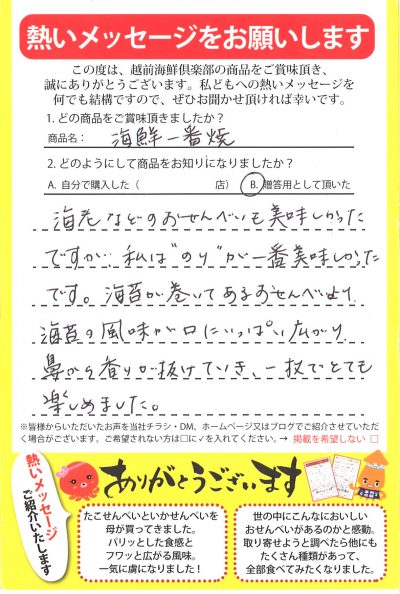 熱いメッセージをお願いします
この度は、越前海鮮倶楽部の商品をご賞味頂き、
誠にありがとうございます。私どもへの熱いメッセージを
何でも結構ですので、ぜひお聞かせ頂ければ幸いです。
1. どの商品をご賞味頂きましたか?
商品名: 海鮮一番焼
2. どのようにして商品をお知りになりましたか?
A. 自分で購入した( 店) B. 贈答用として頂いた
海老などのおせんべいも美味しかった
ですが、私は"のり"が一番美味しかった
です。海苔が巻いてあるおせんべいより
海苔の風味が口にいっぱい広がり
鼻から香りが抜けていき、一枚でとても
楽しめました。
※皆様からいただいたお声を当社チラシ・DM、ホームページ又はブログでご紹介させていただ
く場合がございます。ご希望されない方は□に✓を入れてください。→ 掲載を希望しない □
熱いメッセージ
ご紹介いたします
ありがとうございます
たこせんべいといかせんべいを
母が買ってきました。
パリッとした食感と
フワッと広がる風味。
一気に虜になりました!
世の中にこんなにおいしい
おせんべいがあるのかと感動。
取り寄せようと調べたら他にも
たくさん種類があって、
全部食べてみたくなりました。